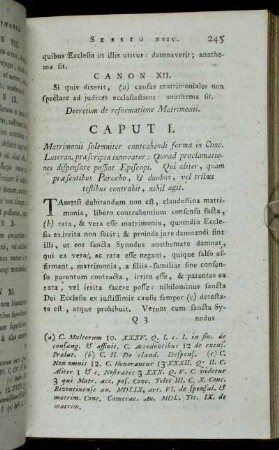 SESSIO XXIV. 245
quibus Ecclesia in illis utitur: damnaverit; anathe-
ma sit.
CANON XII.
Si quis dixerit, (a) causas matrimoniales non
spectare ad judices ecclesiasticos: anathema sit.
Decretum de reformatione Matrimonii.
CAPUT I.
Matrimonii solemniter contrahendi forma in Conc.
Lateran. præscripta innovatur: Quoad proclamatio-
nes dispensare possit Episcopus. Qui aliter, quam
præsentibus Parocho, & duobus, vel tribus
testibus contrahit, nihil agit.
TAmetsi dubitandum non est, clandestina matri-
monia, libero contrahentium consensu facta,
(b) rata, & vera esse matrimonia, quamdiu Eccle-
sia ea irrita non fecit; & proinde jure damnandi sint
illi, ut eos sancta Synodus anathemate damnat,
qui ea vera, ac rata esse negant, quique falso af-
firmant, matrimonia, a filiis-familias sine consen-
su parentum contracta, irrita esse, & parentes ea
rata, vel irrita facere posse: nihilominus sancta
Dei Ecclesia ex justissimis causis semper (c) detesta-
ta est, atque prohibuit. Verum cum sancta Sy-
Q 3 nodus
(a) C. Multorum 10. XXXV. Q. I. c. I. in fin. de
consang. & affinit. C. Accedentibus 12 de excess.
Prelat. (b) C. II. De cland. Desponf. (c) C.
Non omnes 12. C. Honorantur 13 XXXII. Q. II C.
Aliter 1 & s. Nostrates 3 XXX. Q. V. C. videtur
3 qui Matr. acc. pos. Conc. Tolet III. C. X. Conc.
Bizontinense an. MDLIX. art. VI. de sponsal. &
matrim. Conc. Camerac. An. MDL. Tit. IX. de
matrim.